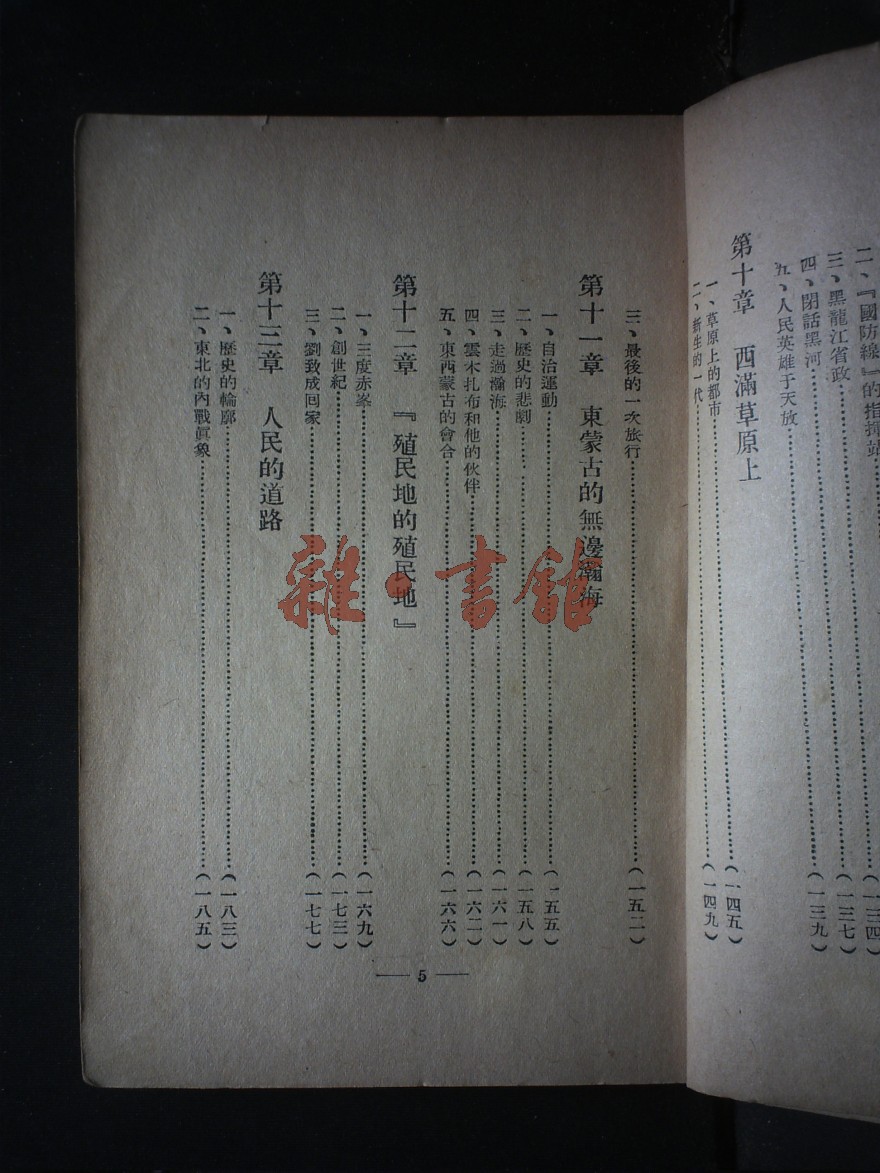 二、『國防線』的指揮站（一三四）
三、黑龍江省政（一三七）
四、閉話黑河（一三九）
五、人民英雄于天放
第十章　西滿草原上
一、草原上的都市（一四五）
二、新生的一代（一四九）
三、最後的一次旅行（一五二）
第十一章　東蒙古的無邊瀚海
一、自治運動（一五五）
二、歷史的悲劇（一五八）
三、走過瀚海（一六一）
四、雲木扎布和他的伙伴（一六二）
五、東西蒙古的會合（一六六）
第十二章　『殖民地的殖民地』
一、三度赤峯（一六九）
二、創世紀（一七三）
三、劉致成回家（一七七）
第十三章　人民的道路
一、歷史的輪廓（一八三）
二、東北的內戰眞象（一八五）
— 5 —
雜·書館